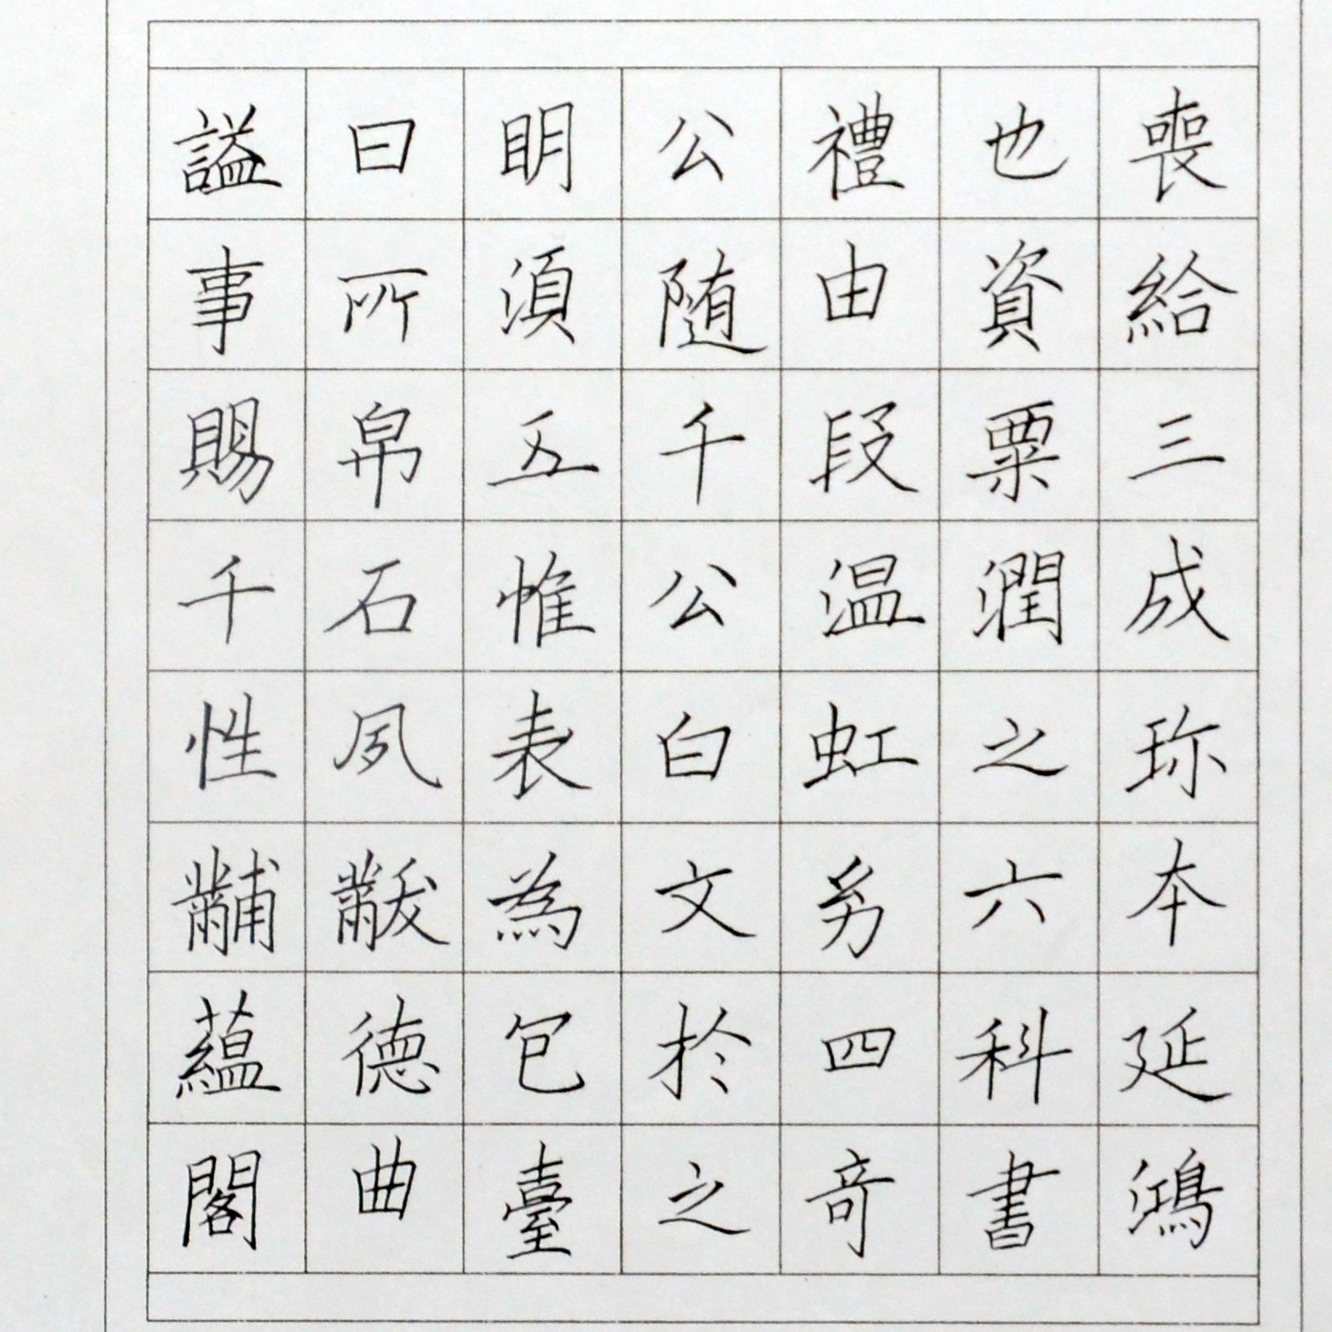 謚曰明公禮也喪
事所須随由資給
賜帛五千段粟三
千石惟公温潤成
性夙表白虹之珎
黼黻為文六本
蘊德包於四科延
閣曲臺之奇書鴻